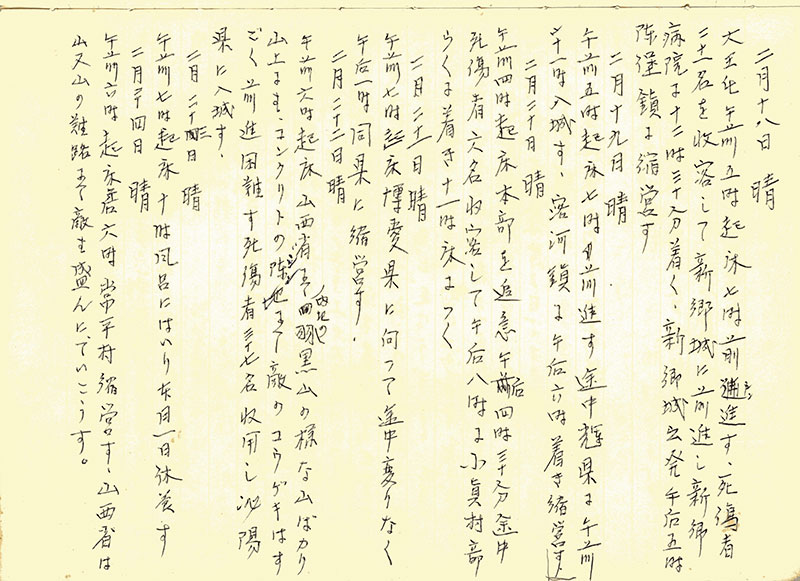 二月十八日　晴
大王化午前五時起床七時前進す、死傷者
二十名を收容して新郷城に前進し新郷
病院に十二時三十分着く、新郷城出発午后五時
陳堡鎮に宿営す
二月十九日　晴
午前五時起床七時前進す途中輝県に午前
十一時入城す、容河鎮に午后六時着き宿営す
二月二十日　晴
午前四時起床本部を追意午后四時三十分途中
死傷者六名收容して午后八時に小真村部
らくに着き十一時床につく
二月二十一日　晴
午前七時起床博愛県に向って途中変りなく
午后一時同県に宿営す、
二月二十二日　晴
午前六時起床山西省に羽黒山の様な山ばかり
山上にはコンクリトの陳地にて敵のコウゲキはす
ごく前進困難す死傷者三十七名收用し沁陽
県に入城す、
二月二十三日　晴
午前七時起床十時風呂にはいり本日一日休養す
二月二十四日　晴
午前六時起床六時常平村宿営す、山西省は
山又山の難路にて敵も盛んにていこうす。